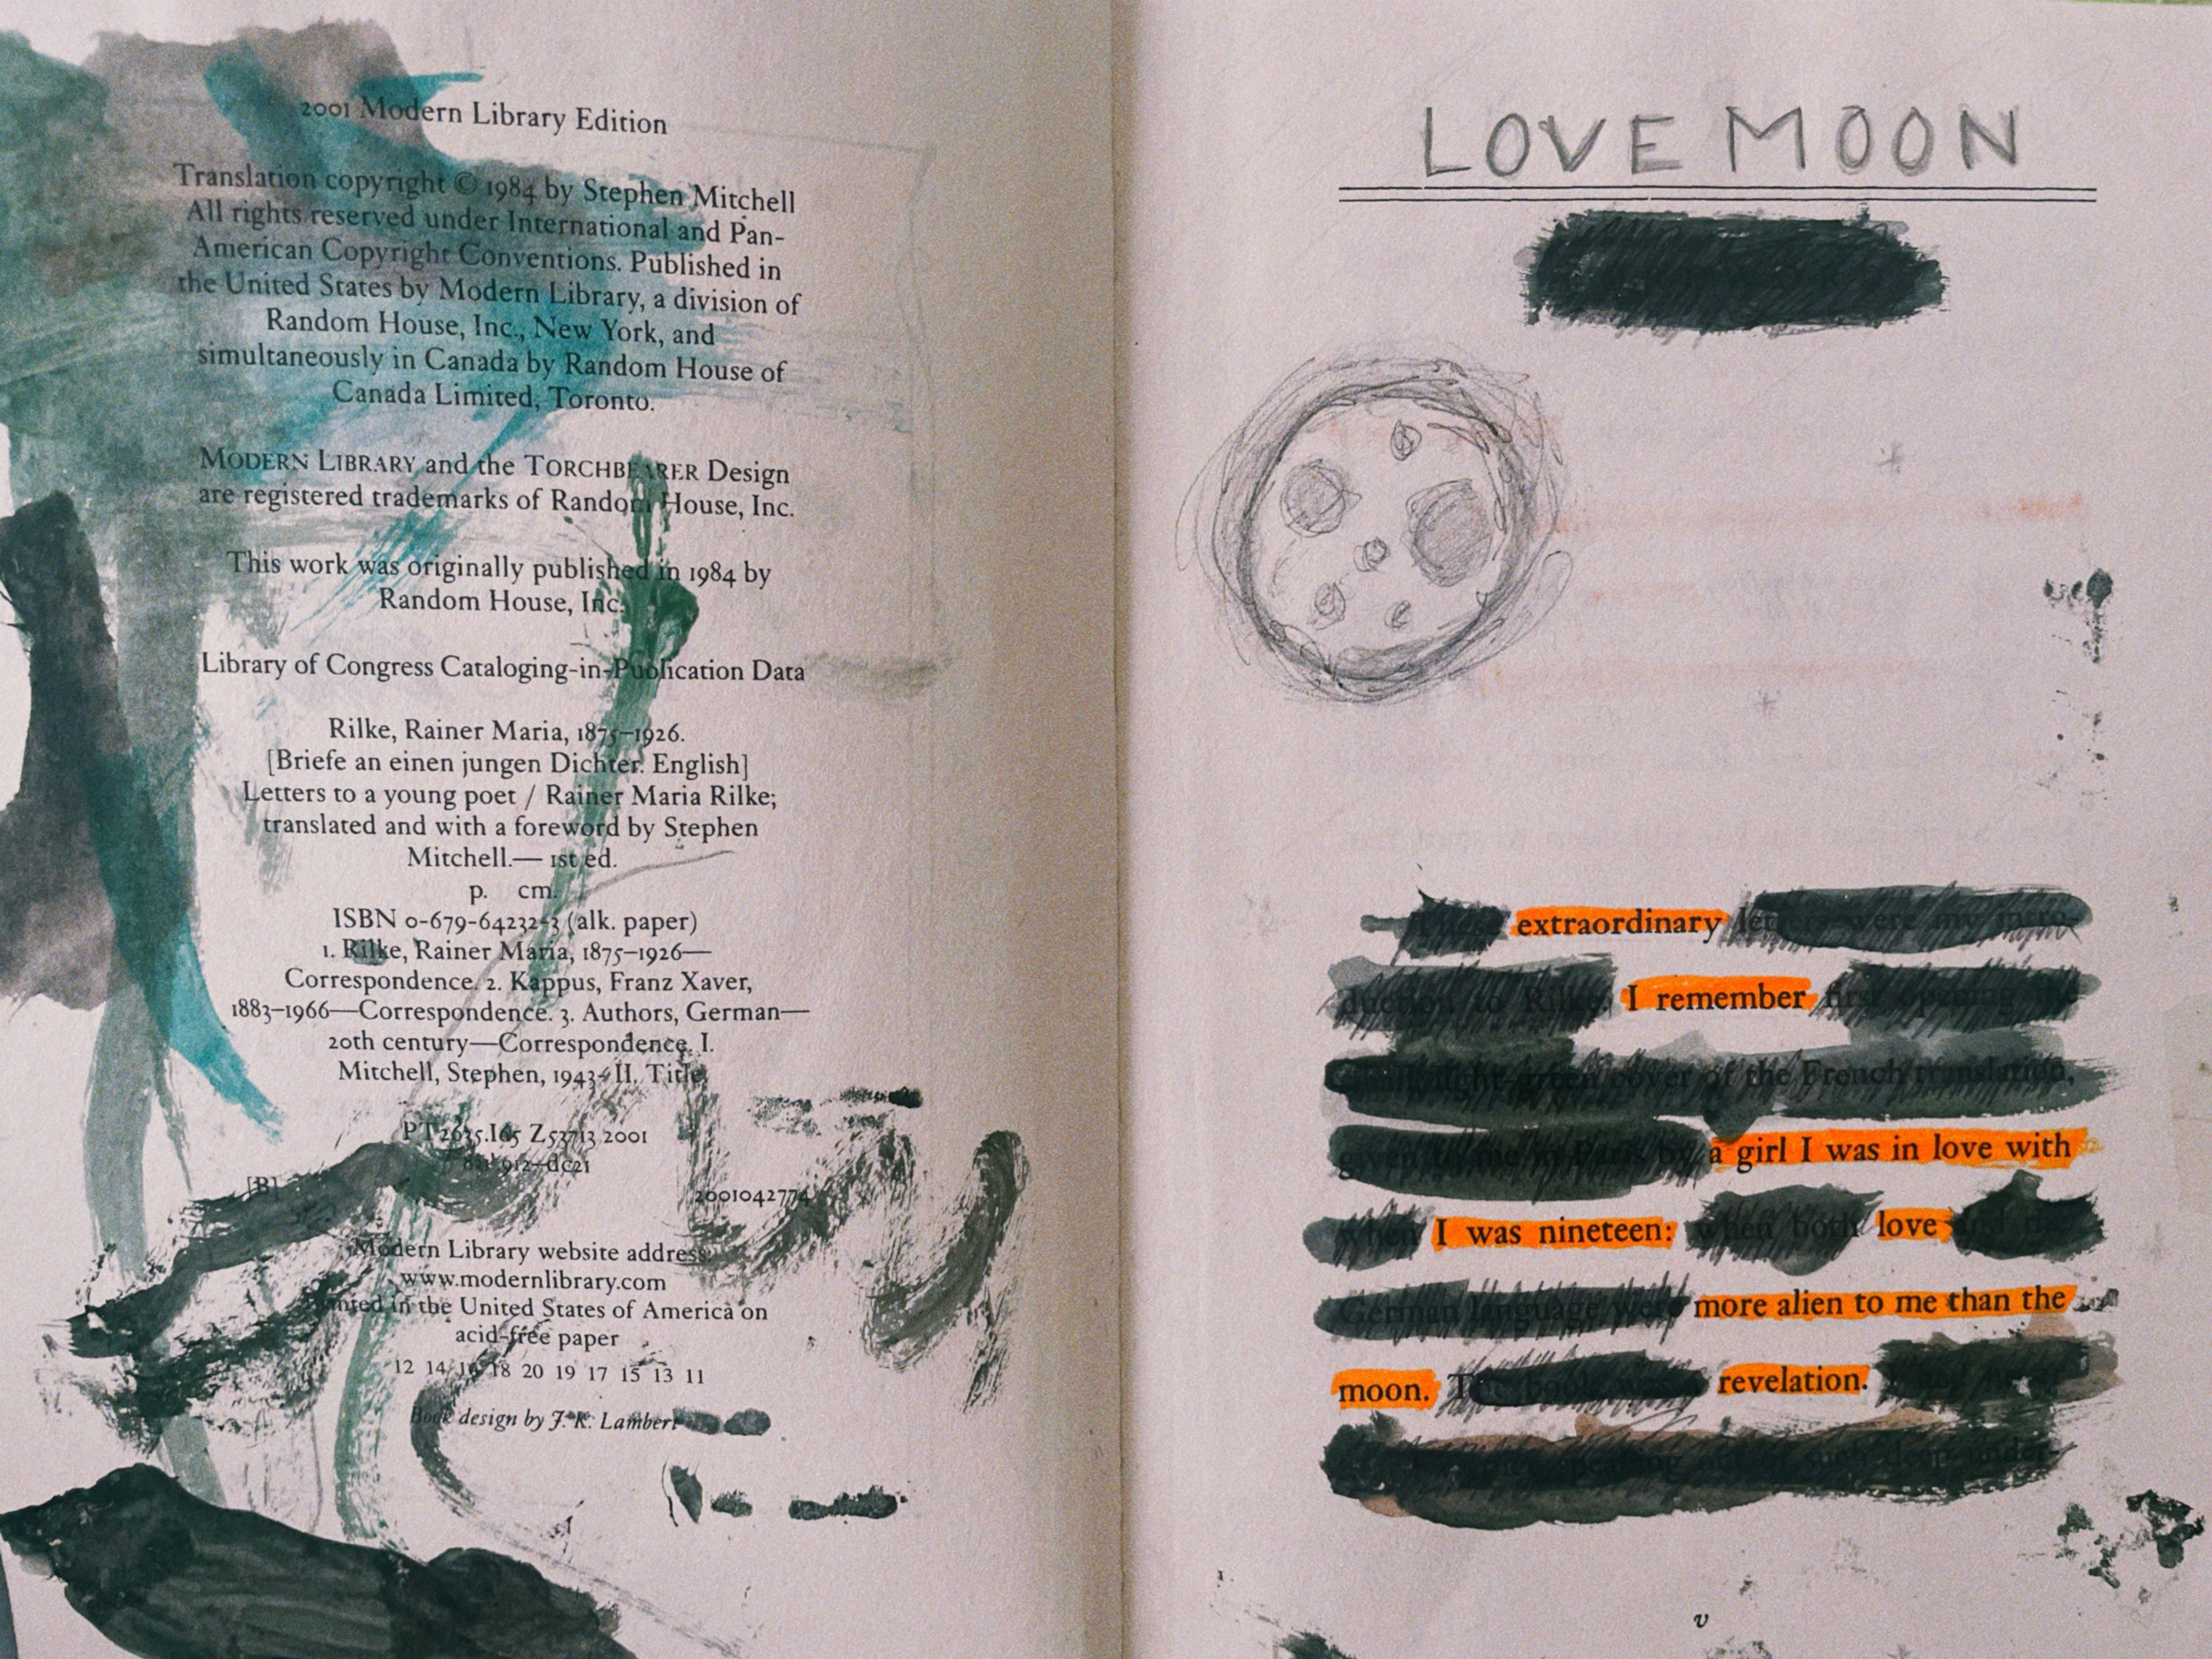 2001 Modern Library Edition
Translation copyright © 1984 by Stephen Mitchell
All rights reserved under International and Pan-
American Copyright Conventions. Published in
the United States by Modern Library, a division of
Random House, Inc., New York, and
simultaneously in Canada by Random House of
Canada Limited, Toronto.
MODERN LIBRARY and the TORCHBEARER Design
are registered trademarks of Random House, Inc.
This work was originally published in 1984 by
Random House, Inc.
Library of Congress Cataloging-in-Publication Data
Rilke, Rainer Maria, 1875–1926.
[Briefe an einen jungen Dichter. English]
Letters to a young poet / Rainer Maria Rilke;
translated and with a foreword by Stephen
Mitchell.— 1st ed.
p. cm.
ISBN 0-679-64232-3 (alk. paper)
1. Rilke, Rainer Maria, 1875–1926—
Correspondence. 2. Kappus, Franz Xaver,
1883–1966—Correspondence. 3. Authors, German—
20th century—Correspondence. I.
Mitchell, Stephen, 1943– II. Title.
PT2635.I65 Z53713 2001
831'.912–dc21
[B]
2001042774
Modern Library website address:
www.modernlibrary.com
Printed in the United States of America on
acid-free paper
12 14 16 18 20 19 17 15 13 11
Book design by J. K. Lambert
LOVE MOON
These extraordinary letters were my intro-
duction to Rilke. I remember first opening the
light green cover of the French translation,
given to me in Paris by a girl I was in love with
when I was nineteen: when both love and
German language were more alien to me than the
moon. The book was a revelation.
speaking out of such deep under-
v